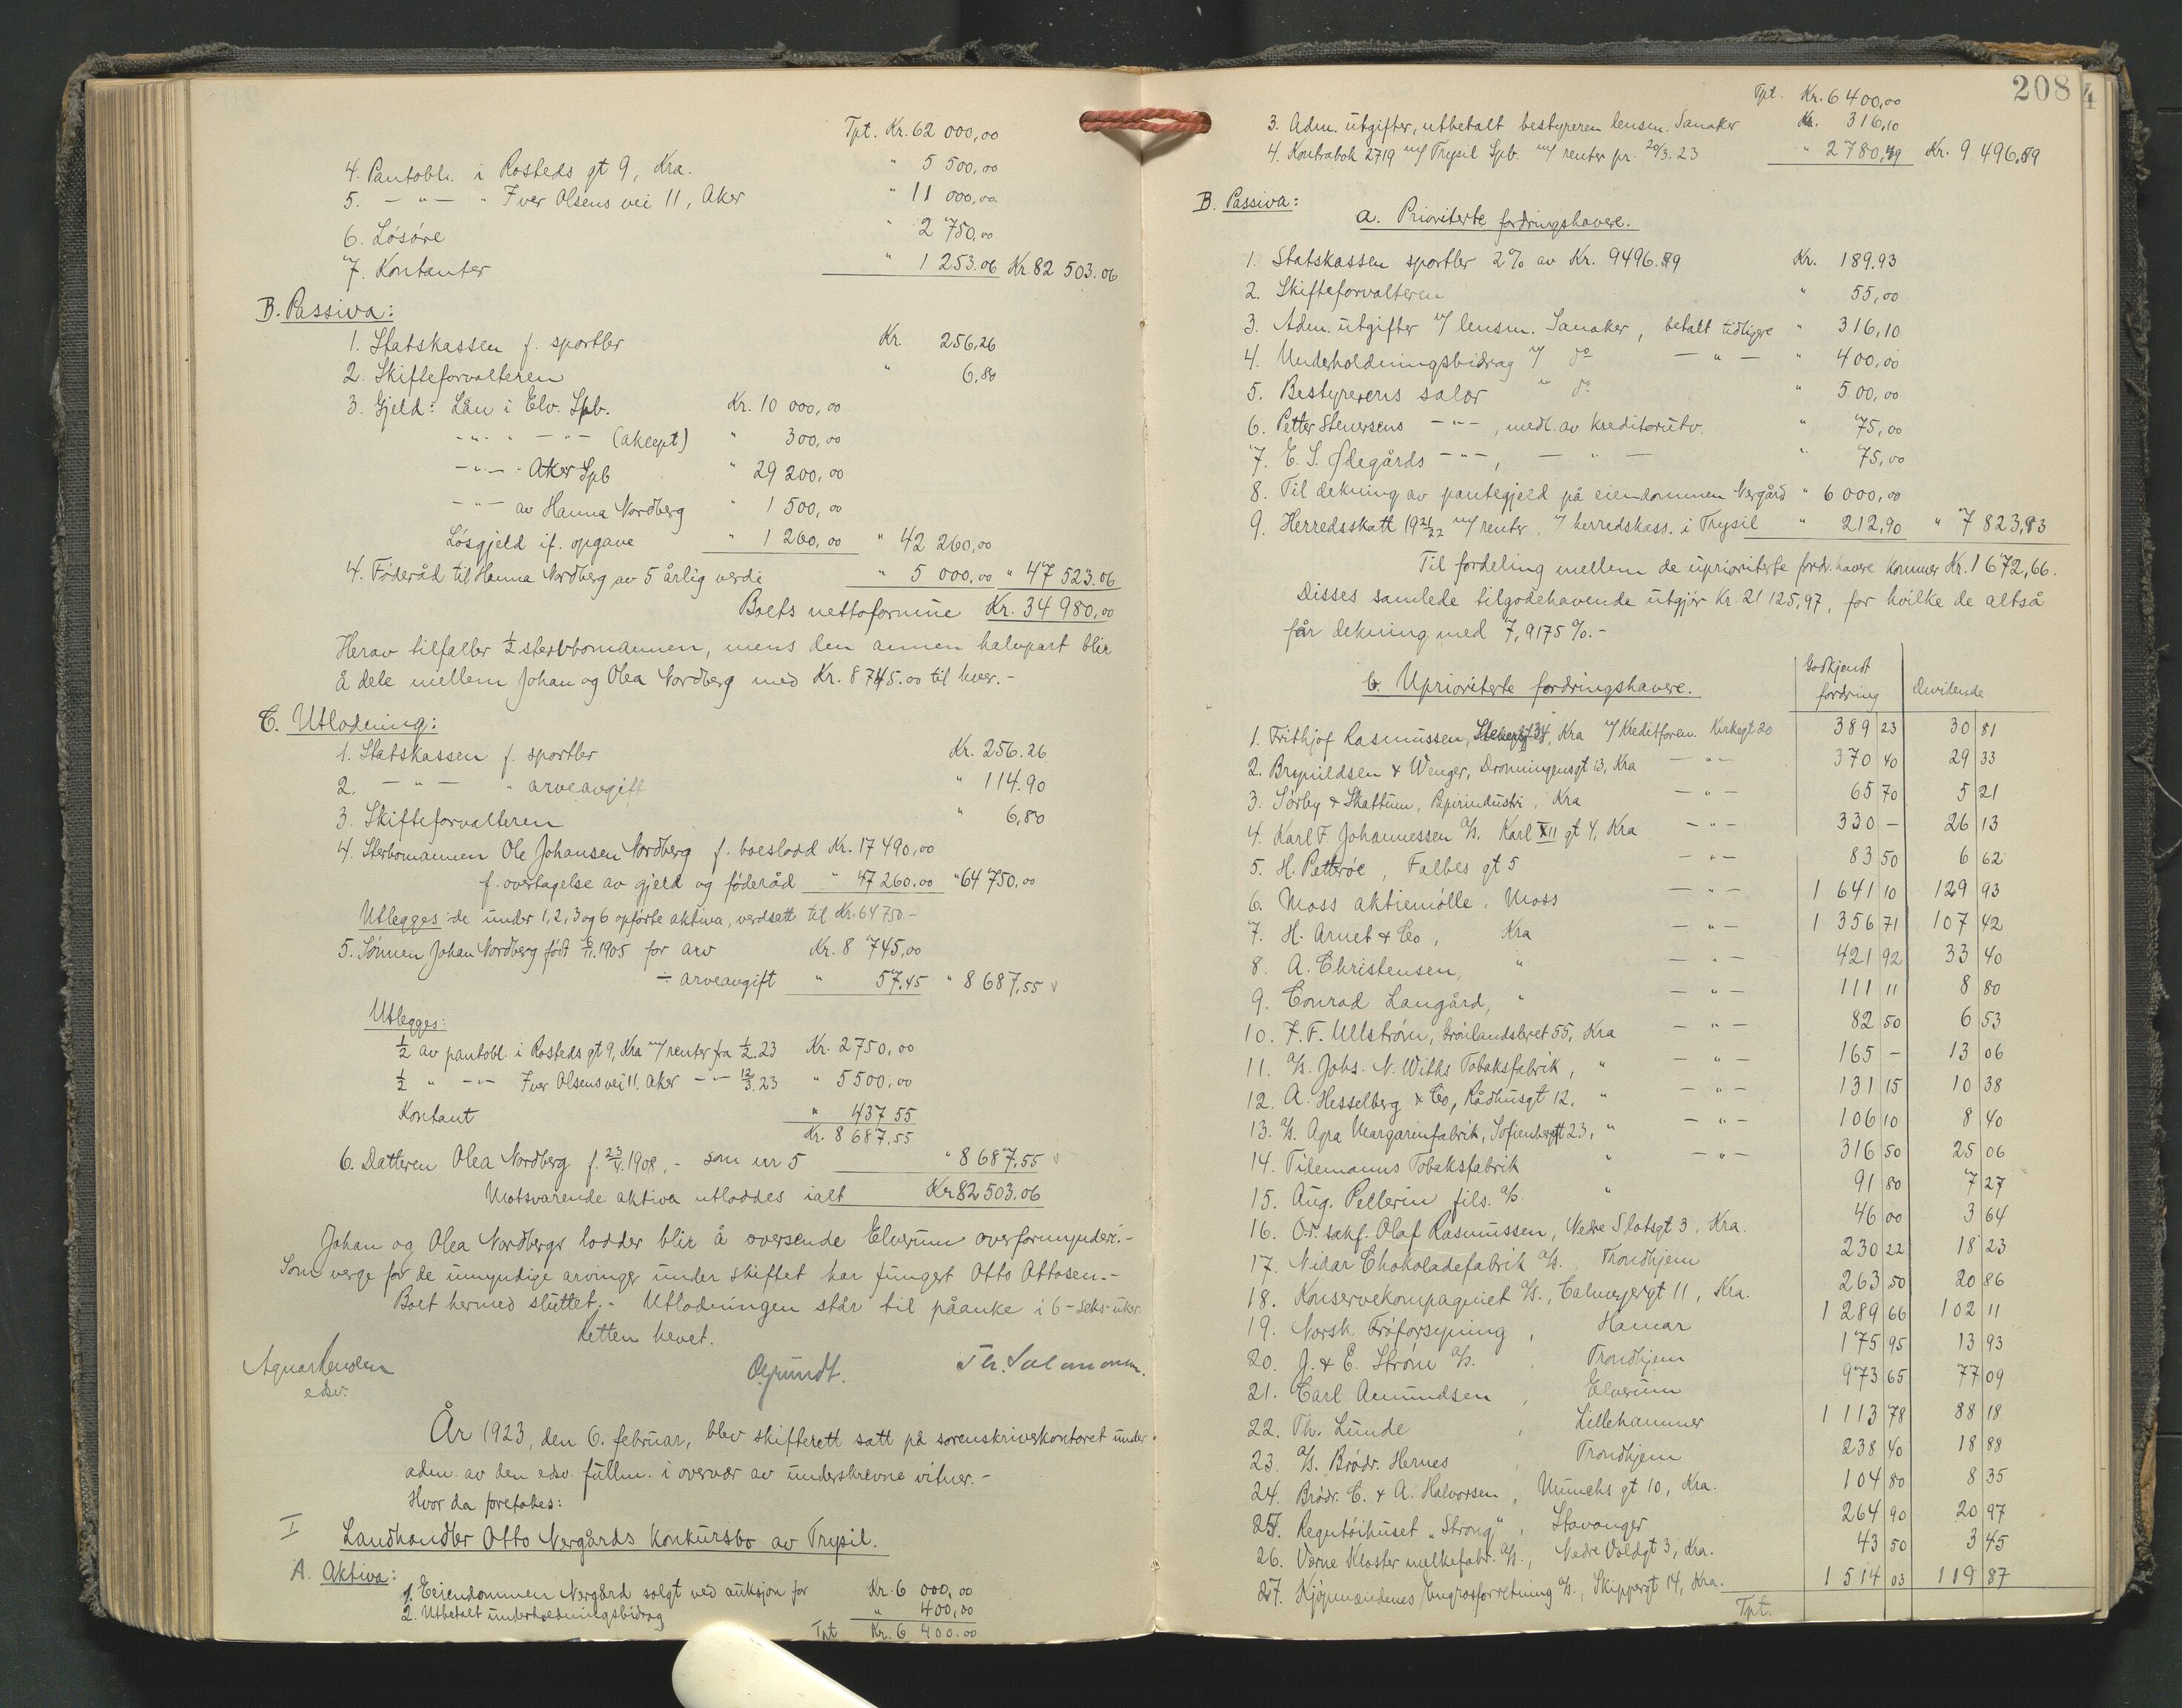 Tpt. Kr. 62 000,00
4. Pantobl. i Rosteds gt 9, Kra. " 5 500,00
5. — " — " Iver Olsens vei 11, Aker " 11 000,00
6. Løsøre " 2 750,00
7. Kontanter " 1 253.06 Kr. 82 503.06
B. Passiva:
1. Statskassen f. sportler Kr. 256,26
2. Skifteforvalteren " 6,80
3. Gjeld: Lån i Elv. Spb. Kr. 10 000,00
- " - " — " — (aksept) " 300,00
— " — " Aker Spb " 29 200,00
— " — av Hanna Nordberg " 1 500,00
Løsgjeld if. opgave " 1 260,00 " 42 260,00
4. Føderåd til Hanna Nordberg av 5 årlig verdi " 5 000,00 " 47 523.06
Boets nettoformue Kr. 34 980,00
Herav tilfaller ½ sterbomannen, mens den annen halvpart blir
å dele mellem Johan og Olea Nordberg med Kr. 8 745.00 til hver.-
C. Utlodning:
1. Statskassen f. sportler Kr. 256.26
2. — " — " arveavgift " 114.90
3. Skifteforvalteren " 6,80
4. Sterbomannen Ole Johansen Nordberg f. boeslodd Kr. 17 490,00
f. overtagelse av gjeld og føderåd " 47 260.00 " 64 750,00
Utlegges: de under 1, 2, 3 og 6 opførte aktiva, verdsatt til Kr. 64 750.-
5. Sønnen Johan Nordberg født 6/11.1905 for arv Kr. 8 745,00
÷ arveavgift " 57.45 " 8 687,55
Utlegges:
½ av pantobl. i Rosteds gt 9, Kra m/ renter fra ½.23 Kr. 2750,00
½ " — " — Iver Olsens vei 11. Aker — " — 12/3.23 " 5 500,00
Kontant " 437 55
Kr. 8 687,55
6. Datteren Olea Nordberg f. 23/4.1908, - som nr 5 " 8 687,55
Motsvarende aktiva utloddes ialt Kr 82 503.06
Johan og Olea Nordbergs lodder blir å oversende Elverum overformynderi.-
Som verge for de umyndige arvinger under skiftet har fungert Otto Ottosen.-
Boet hermed sluttet.- Utlodningen står til påanke i 6-seks-uker.
Retten hevet.
edsv. O. Grundt. Th. Salomonsen.
År 1923, den 6. februar, blev skifterett satt på sorenskriverkontoret under
adm. av den edsv. fullm. i overvær av underskrevne vitner.-
Hvor da foretokes:
I Landhandler Otto Nergårds konkursbo av Trysil.
A. Aktiva:
1. Eiendommen Nergård solgt ved auksjon for Kr. 6 000,00
2. Utbetalt underholdningsbidrag " 400,00
Tpt Kr. 6 400.00
208
4
Tpt. Kr. 6 400,00
3. Adm. utgifter, utbetalt bestyreren lensm. Sanaker Kr. 316,10
4. Kontrabok 2719 m/ Trysil Spb. m/ renter pr. 20/3.23 " 2 780,49 Kr. 9 496,59
B. Passiva:
a. Prioriterte fordringshavere.
1. Statskassen sportler 2% av Kr. 9496.59 Kr. 189.93
2. Skifteforvalteren " 55,00
3. Adm. utgifter v/ lensm. Sanaker, betalt tidligere " 316,10
4. Underholdningsbidrag v/ do — " — " 400,00
5. Bestyrerens salær " do " 500,00
6. Petter Stenersens — " —, medl. av kreditorutv. " 75,00
7. E. S. Ødegårds — " —, — " — " 75,00
8. Til dekning av pantegjeld på eiendommen Nergård " 6 000,00
9. Herredsskatt 1921/22 m/ renter, v/ herredskass. i Trysil " 212,90 " 7 823,93
Til fordeling mellem de uprioriterte fordr. havere kommer Kr. 1 672,66.
Disses samlede tilgodehavende utgjør Kr. 21 125,97, for hvilke de altså
får dekning med 7,9175 %.-
b. Uprioriterte fordringshavere. Godkjent fordring Dividende
1. Frithjof Rasmussen, Kra v/ Kreditforen. Kirkegt 20 389 23 30 81
2. Brynildsen & Wenger, Dronningensgt 13, Kra — " — 370 40 29 33
3. Sørby & Skattum, Papirindustri, Kra — " — 65 70 5 21
4. Karl F. Johannessen a/s. Karl XII gt 4, Kra — " — 330 — 26 13
5. H. Petterøe, Falbes gt 5 — " — 83 50 6 62
6. Moss aktiemølle, Moss — " — 1 641 10 129 93
7. H. Arnet & Co, Kra — " — 1 356 71 107 42
8. A. Christensen, " — " — 421 92 33 40
9. Conrad Langård, " — " — 111 11 8 80
10. F. F. Ullstrøm, Grønlandsleret 55, Kra — " — 82 50 6 53
11. a/s. Johs. N. Withs Tobaksfabrik, " — " — 165 — 13 06
12. A. Hesselberg & Co, Rådhusgt 12, " — " — 131 15 10 38
13. a/s. Agra Margarinfabrik, Sofienberggt 23, " — " — 106 10 8 40
14. Tidemanns Tobaksfabrik " — " — 316 50 25 06
15. Aug. Pellerin fils. a/s. " 91 80 7 27
16. O.r. sakf. Olaf Rasmussen, Nedre Slotsgt 3, Kra. 46 00 3 64
17. Nidar Chokoladefabrik a/s. Trondhjem 230 22 18 23
18. Konservekompagniet a/s., Calmeyergt 11, Kra. 263 50 20 86
19. Norsk Frøforsyning, Hamar 1 289 66 102 11
20. J. & E. Strøm a/s. Trondhjem 175 95 13 93
21. Carl Amundsen, Elverum 973 65 77 09
22. Th. Lunde, Lillehammer 1 113 78 88 18
23. a/s. Brødr. Hernes, Trondhjem 238 40 18 88
24. Brødr. E. & A. Halvorsen, Munchs gt 10, Kra. 104 80 8 35
25. Regntøihuset „Strong", Stavanger 264 90 20 97
26. Værne Kloster melkefabr. a/s., Nedre Voldgt 3, Kra. 43 50 3 45
27. Kjøpmændenes Engrosforretning a/s., Skippergt 14, Kra. 1 514 03 119 87
Tpt.